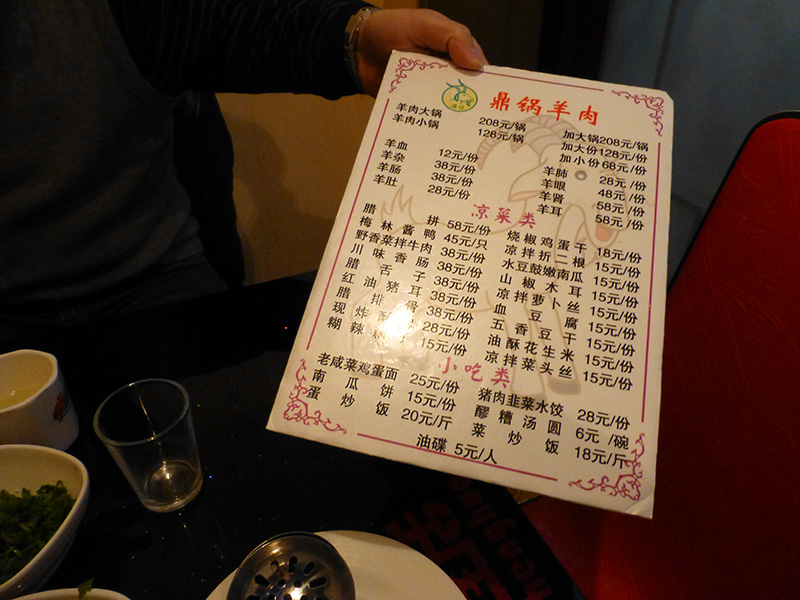 鼎锅羊肉
羊肉大锅 208元/锅 加大锅208元/锅
羊肉小锅 128元/锅 加大份128元/份
加小份68元/份
羊血 12元/份 羊肺 28元/份
羊杂 38元/份 羊眼 48元/份
羊肠 38元/份 羊肾 58元/份
羊肚 28元/份 羊耳 58元/份
凉菜类
腊拼 58元/份 烧椒鸡蛋干 18元/份
梅林酱鸭 45元/只 凉拌折二根 15元/份
野香菜拌牛肉 38元/份 水豆鼓嫩南瓜 15元/份
川味香肠 38元/份 山椒木耳 15元/份
腊舌子 38元/份 凉拌萝卜丝 15元/份
红油猪耳 38元/份 血豆腐 15元/份
腊排骨 38元/份 五香豆干 15元/份
现炸 28元/份 油酥花生米 15元/份
糊辣 15元/份 凉拌菜头丝 15元/份
小吃类
老咸菜鸡蛋面 25元/份 猪肉韭菜水饺 28元/份
南瓜饼 15元/份 醪糟汤圆 6元/碗
蛋炒饭 20元/斤 菜炒饭 18元/斤
油碟 5元/人